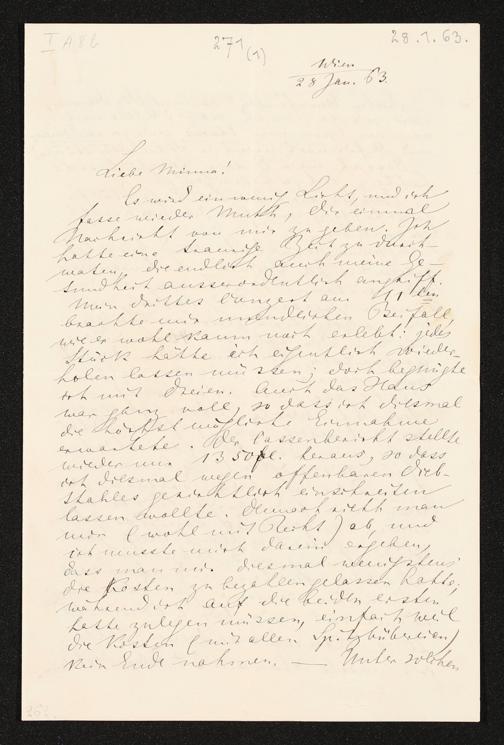 I A 8 b
271 (1)
28.1.63.
Wien
28 Jan. 63.
Liebe Minna!
Es wird ein wenig Licht, und ich
fasse wieder Muth, Dir einmal
Nachricht von mir zu geben. Ich
hatte eine traurige Zeit zu durch-
waten, die endlich auch meine Ge-
sundheit ausserordentlich angriff.
Mein drittes Concert am 11ten
brachte mir unerhörten Beifall,
wie er wohl kaum noch erlebt: jedes
Stück hätte ich eigentlich wieder-
holen lassen müssen; doch begnügte
ich mich mit Dreien. Auch das Haus
war ganz voll, so dass ich diesmal
die höchst mögliche Einnahme
erwartete. Der Cassenbericht stellte
wieder nur 1350 fl. heraus, so dass
ich diesmal wegen offenbaren Dieb-
stahles gerichtlich einschreiten
lassen wollte. Demnach rieth man
mir (wohl mit Recht) ab, und
ich musste mich darein ergeben,
dass man mir diesmal wenigstens
die Kosten zu bezahlen gelassen hatte,
während ich auf die beiden ersten
hatte zulegen müssen, einfach weil
die Kosten (mit allen Spitzbübereien)
kein Ende nahmen. — Unter solchen